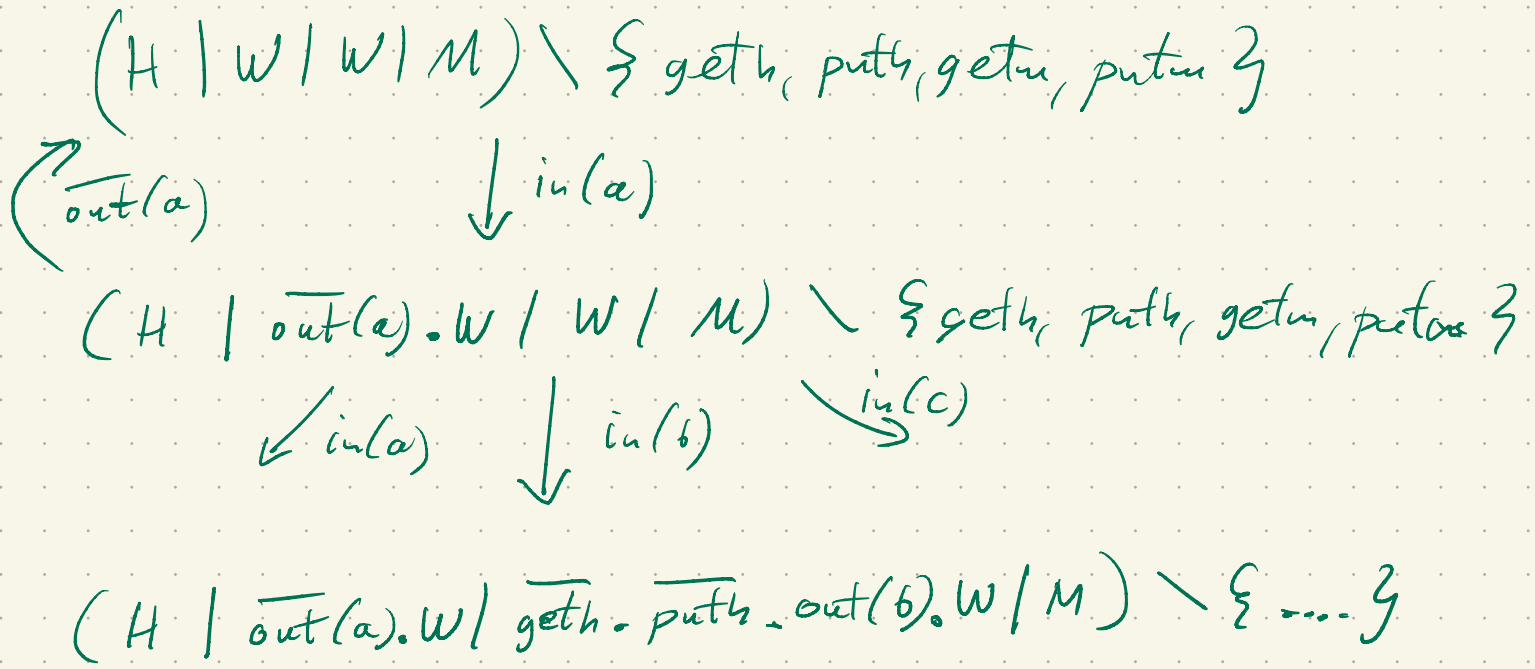 (H | W | W | M) \ { geth, puth, getm, putm }
↑ o̅u̅t̅(a) ↓ in(a)
(H | o̅u̅t̅(a).W | W | M) \ { geth, puth, getm, putm }
↙ in(a) ↓ in(b) ↘ in(c)
(H | o̅u̅t̅(a).W | g̅e̅t̅h̅. p̅u̅t̅h̅. out(b).W | M) \ { .... }